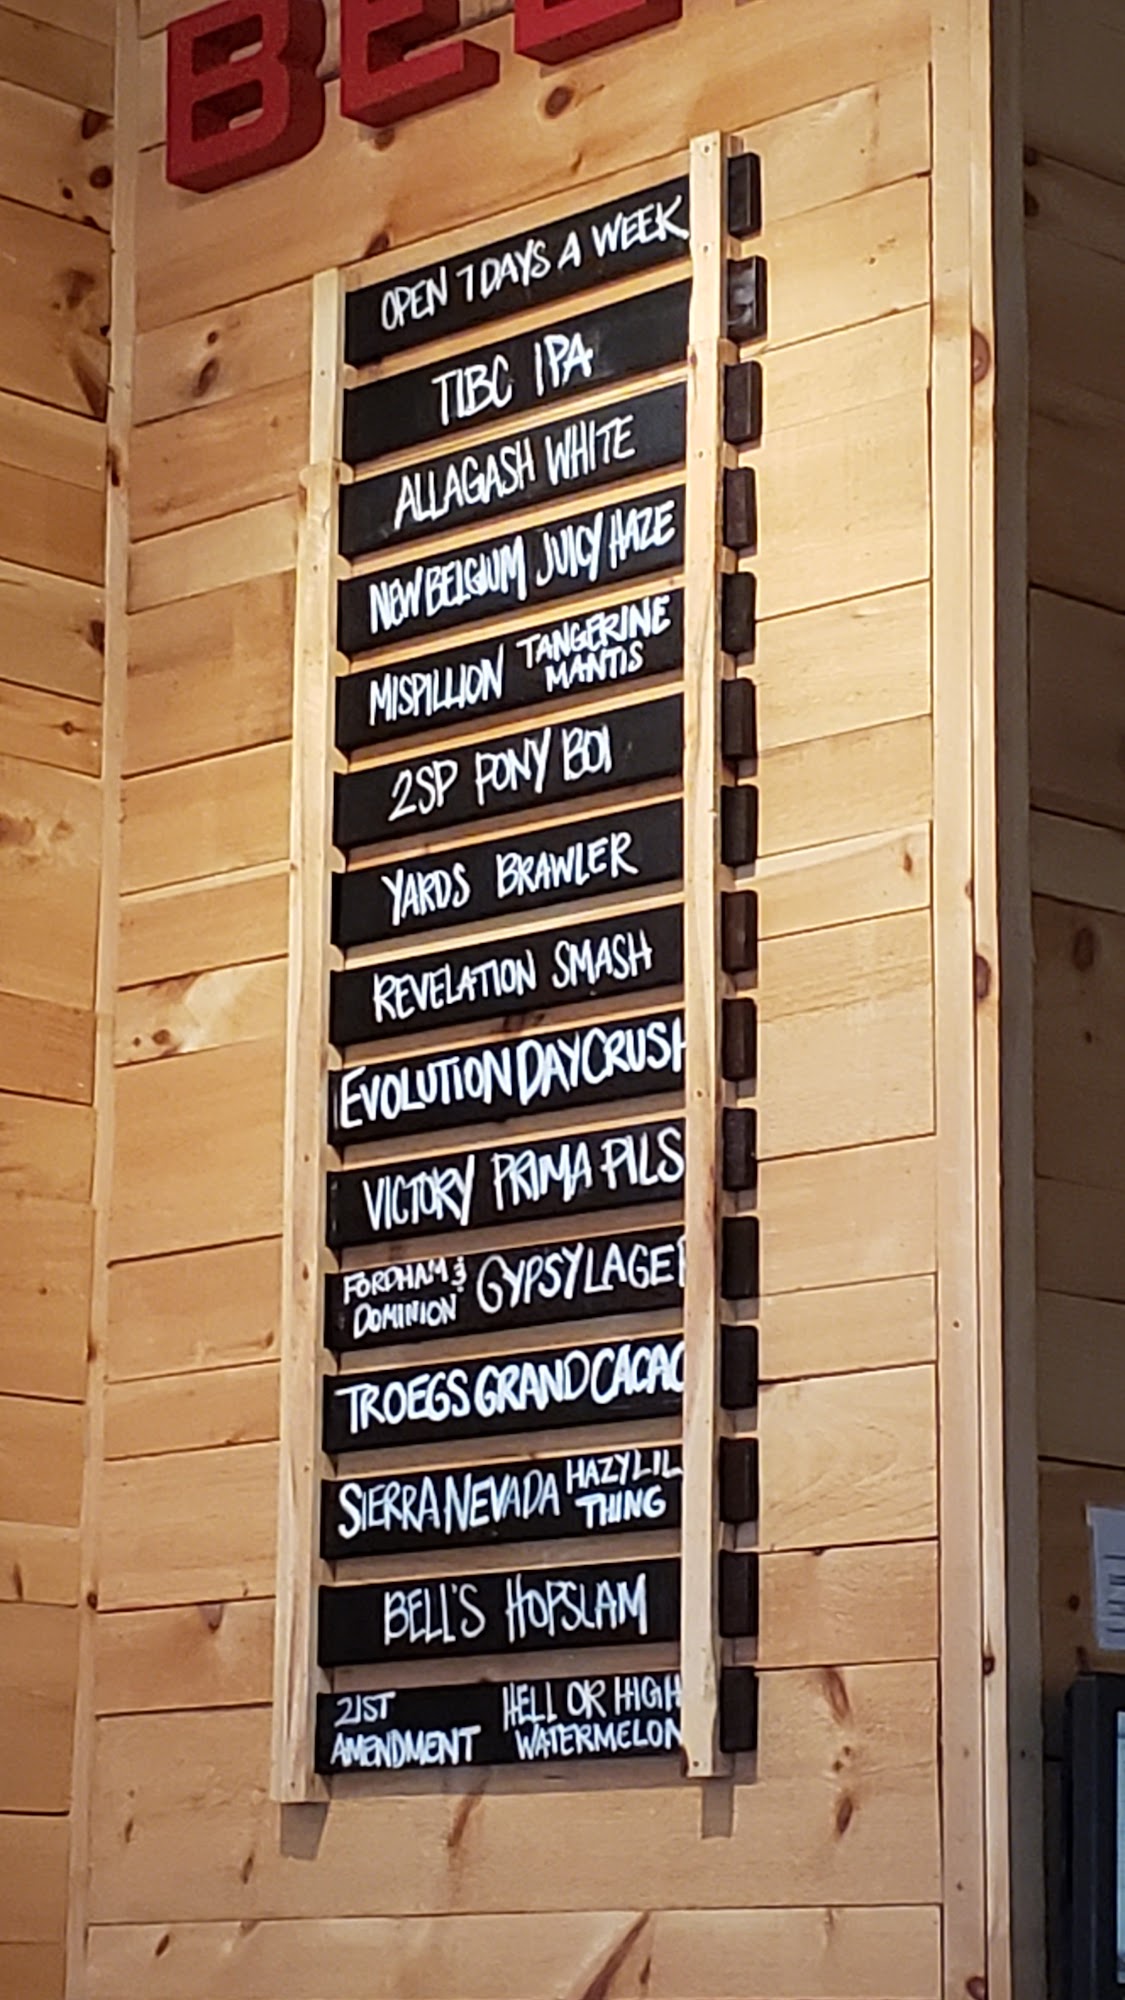 BEE
OPEN 7 DAYS A WEEK
TLBC IPA
ALLAGASH WHITE
NEW BELGIUM JUICY HAZE
MISPILLION TANGERINE
MANTIS
2SP PONY BOI
YARDS BRAWLER
REVELATION SMASH
EVOLUTION DAY CRUSH
VICTORY PRIMA PILS
FORDHAM &
DOMINION GYPSY LAGER
TROEGS GRAND CACAO
SIERRA NEVADA HAZY LIL
THING
BELL'S HOPSLAM
21ST
AMENDMENT
HELL OR HIGH
WATERMELON